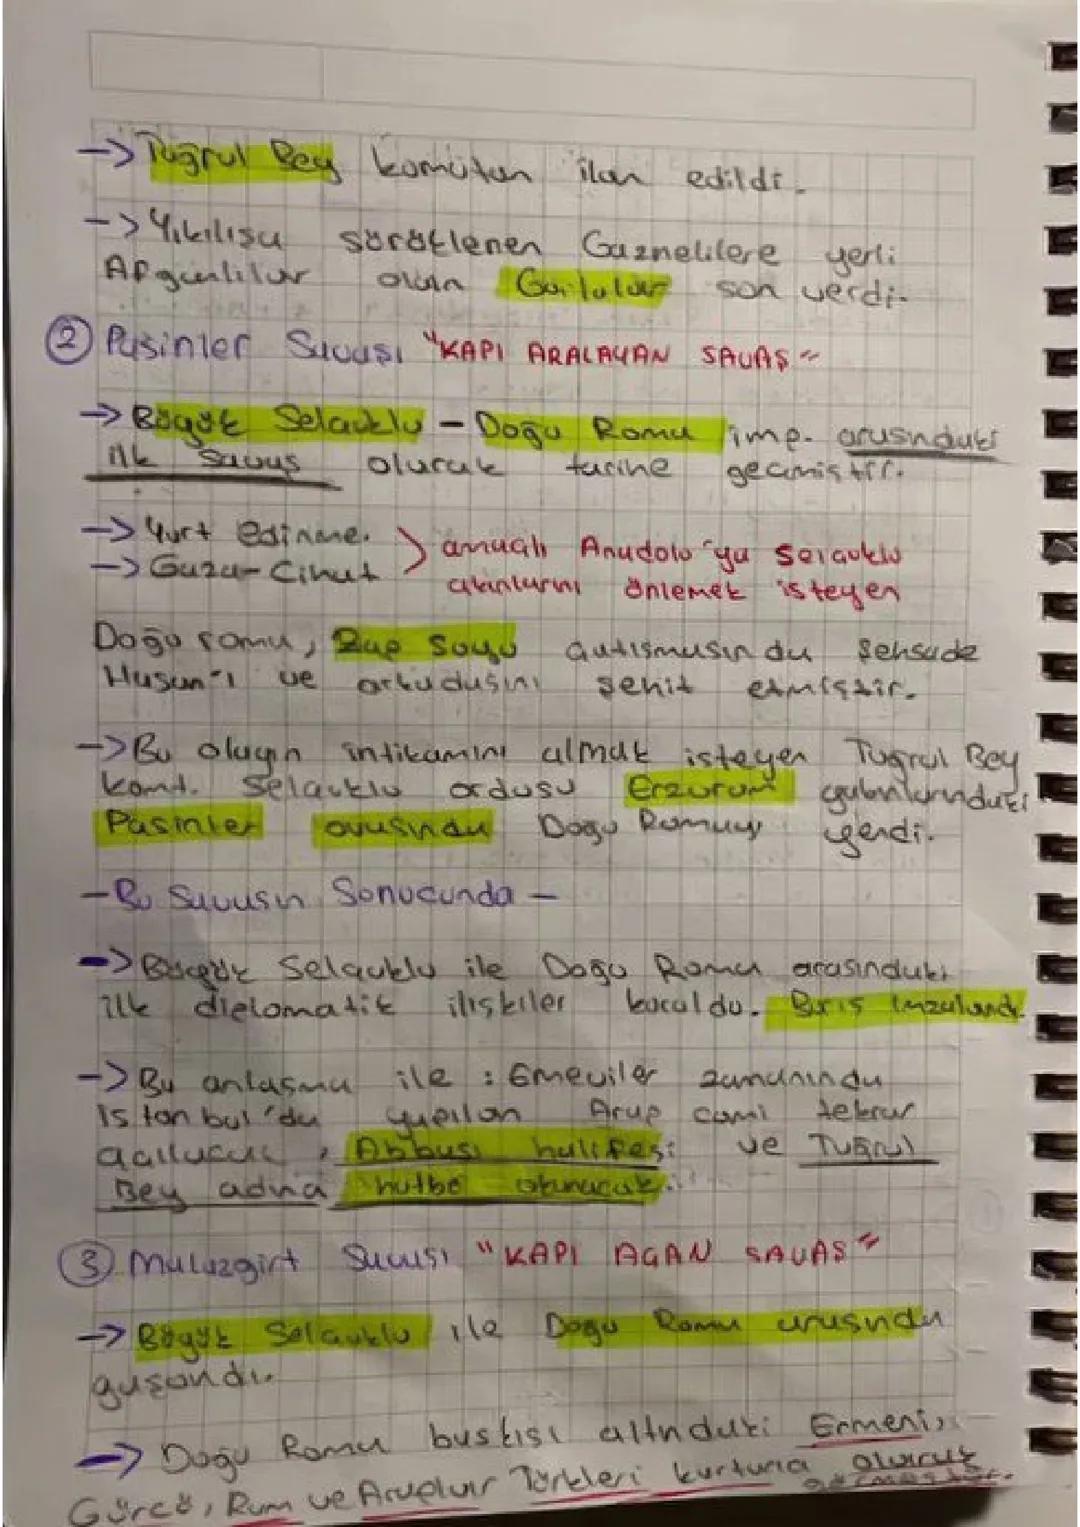 -> Tuğrul Bey komutan ilan edildi.
-> Yıkılışa sürüklenen Gaznelilere yerli
Afganlılar olan Gurlular son verdi.
② Pasinler Savaşı "KAPI ARALAYAN SAVAŞ"
-> Büyük Selçuklu - Doğu Roma imp. arasındaki
ilk savaş olarak tarihe geçmiştir.
-> Yurt edinme. } amaçlı Anadolu'ya Selçuklu
-> Gaza-Cihat akınlarını önlemek isteyen
Doğu roma, Zap Soyu çatışmasında Şehzade
Hasan'ı ve arkadaşını şehit etmiştir.
-> Bu olayın intikamını almak isteyen Tuğrul Bey
komt. Selçuklu ordusu Erzurum yakınlarındaki
Pasinler ovasında Doğu Romayı yendi.
- Bu Savaşın Sonucunda -
-> Büyük Selçuklu ile Doğu Roma arasındaki
ilk diplomatik ilişkiler kuruldu. Barış imzalandı.
-> Bu anlaşma ile : Emeviler zamanında
İstanbul'da yapılan Arap cami tekrar
açılacak, Abbasi halifesi ve Tuğrul
Bey adına hutbe okunacak.
③ Malazgirt Savaşı "KAPI AÇAN SAVAŞ"
-> Büyük Selçuklu ile Doğu Roma arasında
yaşandı.
-> Doğu Roma baskısı altındaki Ermeni,
Gürcü, Rum ve Araplar Türkleri kurtarıcı olarak
görmüştür.